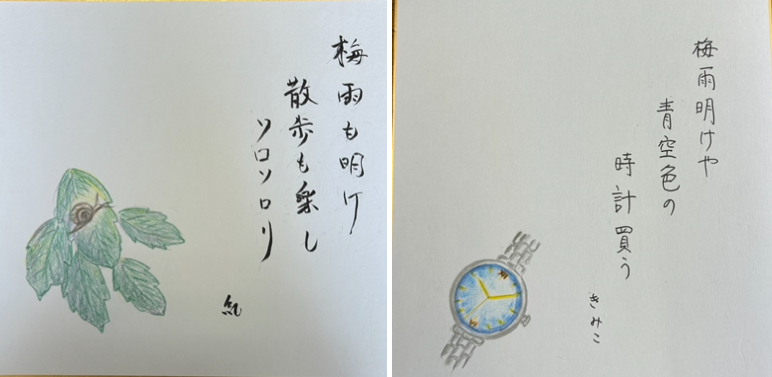 梅雨も明け
散歩も楽し
ソロソロリ
紀
梅雨明けや
青空色の
時計買う
きみこ